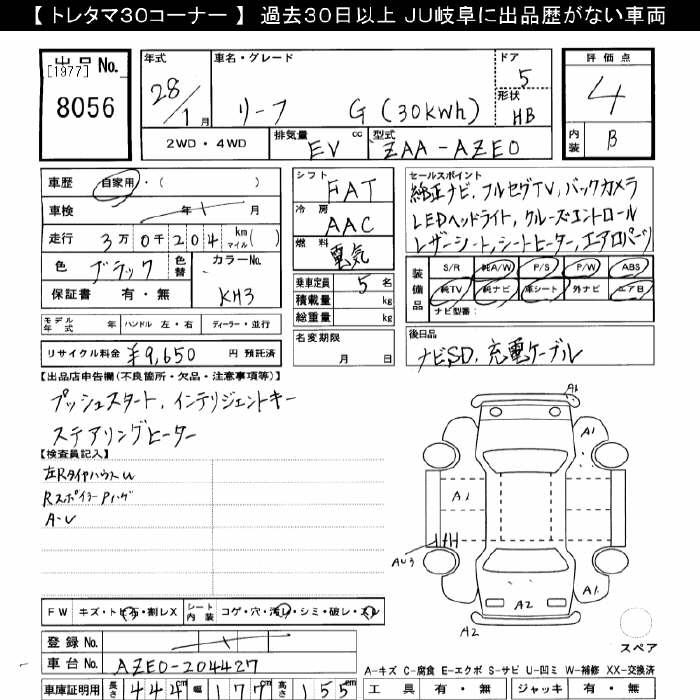 【 トレタマ30コーナー 】 過去30日以上 JU岐阜に出品歴がない車両
出品No. [1977] 8056
年式 28/1月
車名・グレード リーフ G (30kWh)
ドア 5
形状 HB
評価点 4
内装 B
2WD・4WD
排気量 EV cc
型式 ZAA-AZE0
車歴 自家用・( )
車検 年 月
走行 3万0千204km マイル( )
色 ブラック 色替
カラーNo. KH3
保証書 有・無
シフト FAT
冷房 AAC
燃料 電気
乗車定員 5名
積載量 kg
総重量 kg
セールスポイント
純正ナビ, フルセグTV, バックカメラ
LEDヘッドライト, クルーズコントロール
レザーシート, シートヒーター, エアロパーツ
装備品 S/R 純A/W P/S P/W ABS
純TV 純ナビ 革シート 外ナビ エアB
ナビ型番:
モデル年式 年 ハンドル 左・右 ディーラー・並行
リサイクル料金 ¥9,650 円 預託済
名変期限 月 日
後日品 ナビSD, 充電ケーブル
【出品店申告欄(不良箇所・欠品・注意事項等)】
プッシュスタート, インテリジェントキー
ステアリングヒーター
【検査員記入】
左RタイヤハウスU
RスポイラーPハゲ
A-U
A1
A1
A1
AU3
A1
A2
A2
スペア
FW キズ・トビ石・割レX シート内装 コゲ・穴・汚レ・シミ・破レ・スレ
登録No.
車台No. AZE0-204427
A-キズ C-腐食 E-エクボ S-サビ U-凹ミ W-補修 XX-交換済
車庫証明用 長さ 444cm 幅 177cm 高さ 155cm
工具 有・無 ジャッキ 有・無